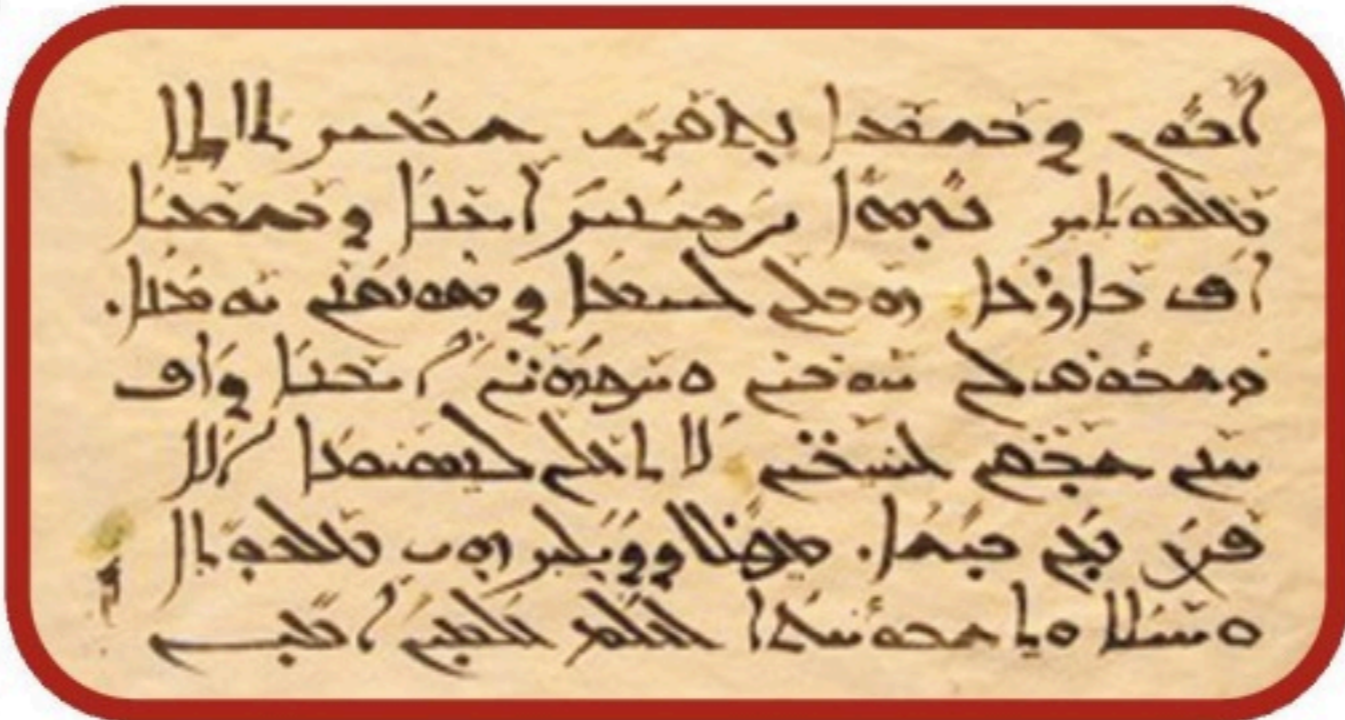 ܐܒܘܢ ܕܒܫܡܝܐ ܢܬܩܕܫ ܫܡܟ ܬܐܬܐ
ܡܠܟܘܬܟ ܢܗܘܐ ܨܒܝܢܟ ܐܝܟܢܐ ܕܒܫܡܝܐ
ܐܦ ܒܐܪܥܐ ܗܒ ܠܢ ܠܚܡܐ ܕܣܘܢܩܢܢ ܝܘܡܢܐ.
ܘܫܒܘܩ ܠܢ ܚܘܒܝܢ ܘܚܛܗܝܢ ܐܝܟܢܐ ܕܐܦ
ܚܢܢ ܫܒܩܢ ܠܚܝܒܝܢ ܠܐ ܬܥܠܢ ܠܢܣܝܘܢܐ ܐܠܐ
ܦܨܢ ܡܢ ܒܝܫܐ. ܡܛܠ ܕܕܝܠܟ ܗܝ ܡܠܟܘܬܐ
ܘܚܝܠܐ ܘܬܫܒܘܚܬܐ ܠܥܠܡ ܥܠܡܝܢ ܐܡܝܢ